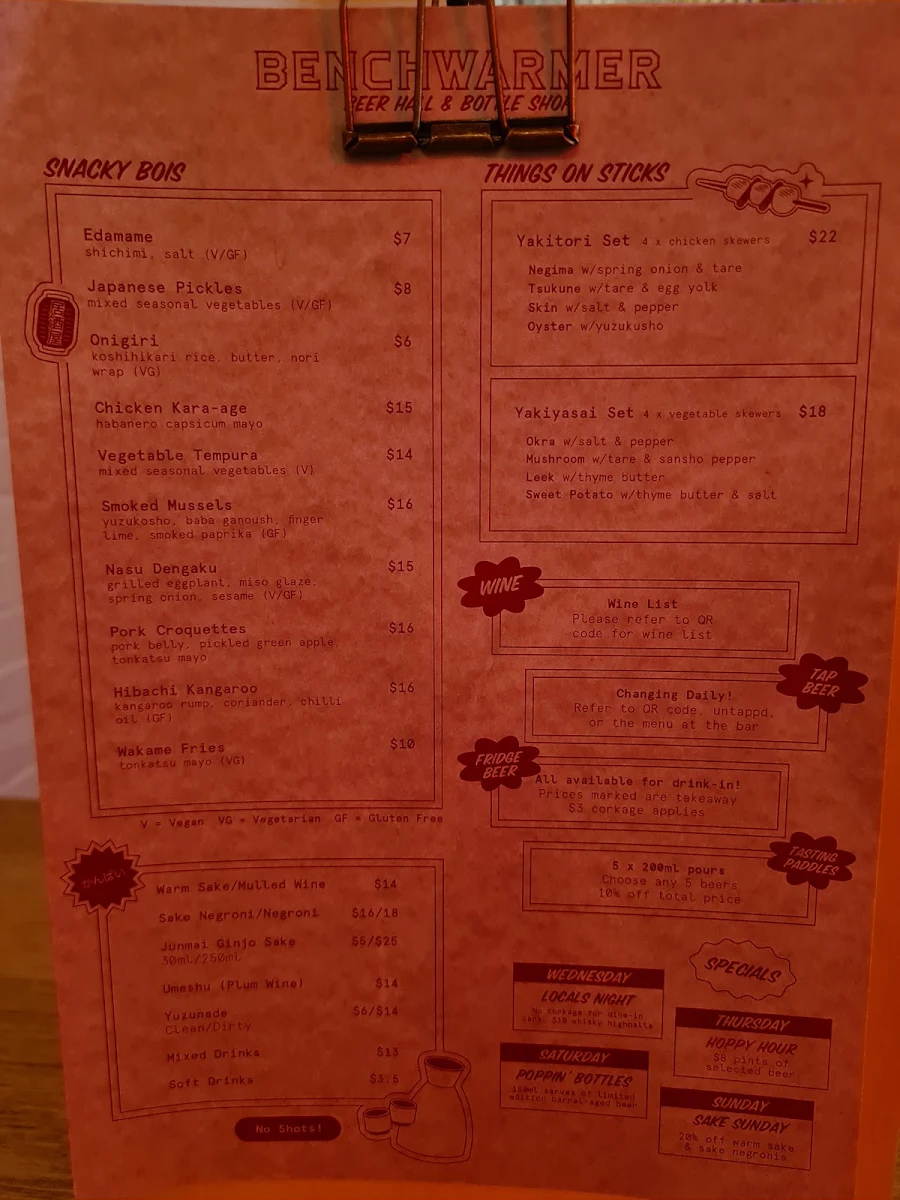 BENCHWARMER
BEER HALL & BOTTLE SHOP
SNACKY BOIS
Edamame $7
shichimi, salt (V/GF)
Japanese Pickles $8
mixed seasonal vegetables (V/GF)
Onigiri $6
koshihikari rice, butter, nori
wrap (VG)
Chicken Kara-age $15
habanero capsicum mayo
Vegetable Tempura $14
mixed seasonal vegetables (V)
Smoked Mussels $16
yuzukosho, baba ganoush, finger
lime, smoked paprika (GF)
Nasu Dengaku $15
grilled eggplant, miso glaze,
spring onion, sesame (V/GF)
Pork Croquettes $16
pork belly, pickled green apple,
tonkatsu mayo
Hibachi Kangaroo $16
kangaroo rump, coriander, chilli
oil (GF)
Wakame Fries $10
tonkatsu mayo (VG)
V = Vegan VG = Vegetarian GF = Gluten Free
かんぱい
Warm Sake/Mulled Wine $14
Sake Negroni/Negroni $16/18
Junmai Ginjo Sake $5/$25
30ml/250ml
Umeshu (Plum Wine) $14
Yuzunade $6/$14
Clean/Dirty
Mixed Drinks $13
Soft Drinks $3.5
No Shots!
THINGS ON STICKS
Yakitori Set 4 x chicken skewers $22
Negima w/spring onion & tare
Tsukune w/tare & egg yolk
Skin w/salt & pepper
Oyster w/yuzukusho
Yakiyasai Set 4 x vegetable skewers $18
Okra w/salt & pepper
Mushroom w/tare & sansho pepper
Leek w/thyme butter
Sweet Potato w/thyme butter & salt
WINE
Wine List
Please refer to QR
code for wine list
TAP
BEER
Changing Daily!
Refer to QR code, untappd,
or the menu at the bar
FRIDGE
BEER
All available for drink-in!
Prices marked are takeaway
$3 corkage applies
TASTING
PADDLES
5 x 200ml pours
Choose any 5 beers
10% off total price
SPECIALS
WEDNESDAY
LOCALS NIGHT
No corkage for dine-in
cans, $10 whisky highballs
THURSDAY
HOPPY HOUR
$8 pints of
selected beer
SATURDAY
POPPIN' BOTTLES
150ml serves of limited
edition barrel-aged beer
SUNDAY
SAKE SUNDAY
20% off warm sake
& sake negronis